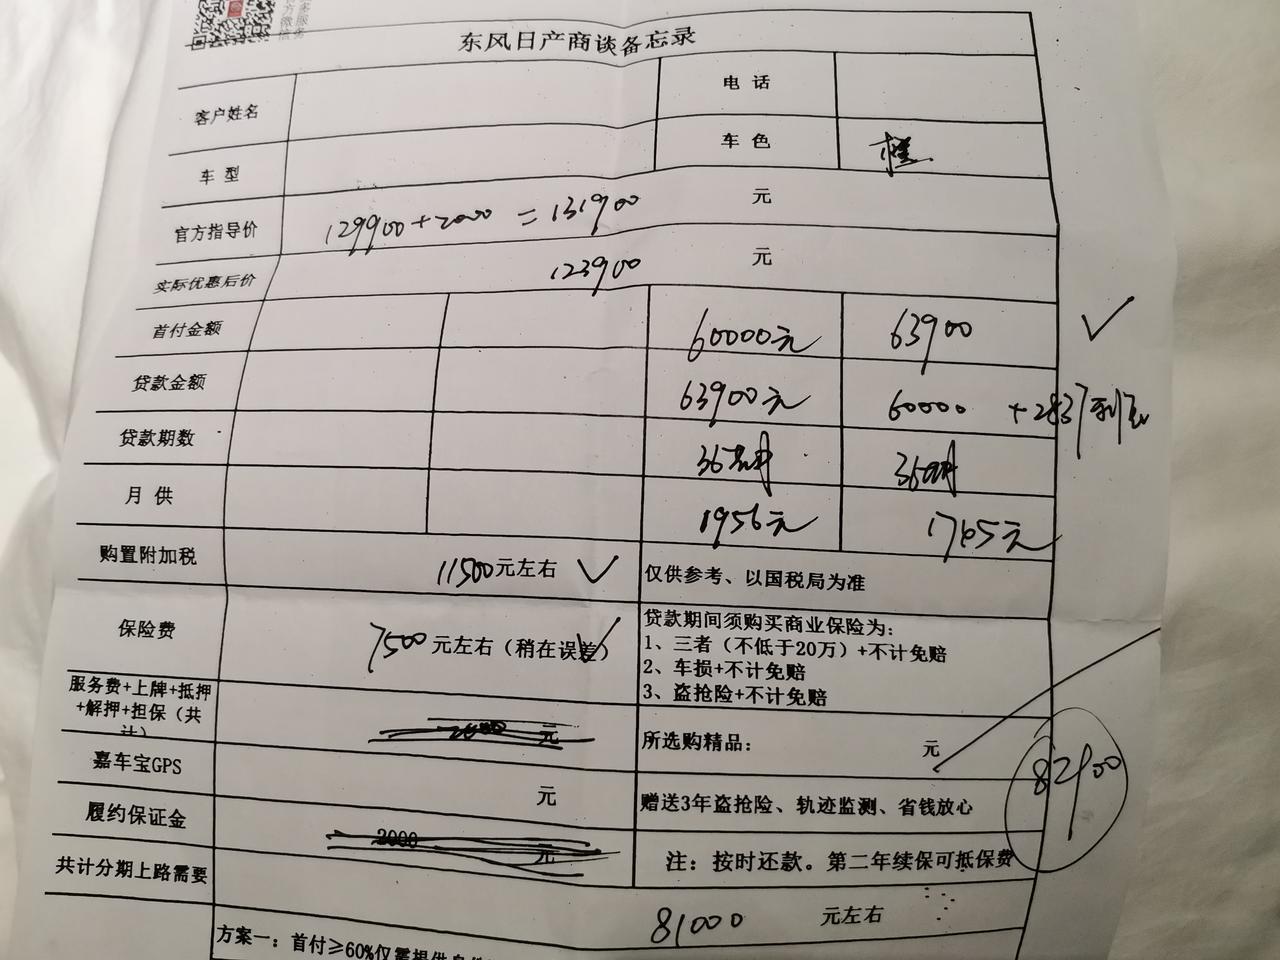 东风日产商谈备忘录
客户姓名 电 话
车 型 车 色 橙
官方指导价 129900+2000 = 131900 元
实际优惠后价 123900 元
首付金额 60000元 63900 ✓
贷款金额 63900元 60000 + 2837利息
贷款期数 36期 36期
月 供 1956元 1745元
购置附加税 11500元左右 ✓ 仅供参考、以国税局为准
保险费 7500元左右（稍在误差） ✓
贷款期间须购买商业保险为：
1、三者（不低于20万）+不计免赔
2、车损+不计免赔
3、盗抢险+不计免赔
服务费+上牌+抵押
+解押+担保（共
计） 元
所选购精品： 元
82900
嘉车宝GPS 元 赠送3年盗抢险、轨迹监测、省钱放心
履约保证金 2000 元 注：按时还款。第二年续保可抵保费
共计分期上路需要 81000 元左右
方案一：首付≥60%仅需提供身